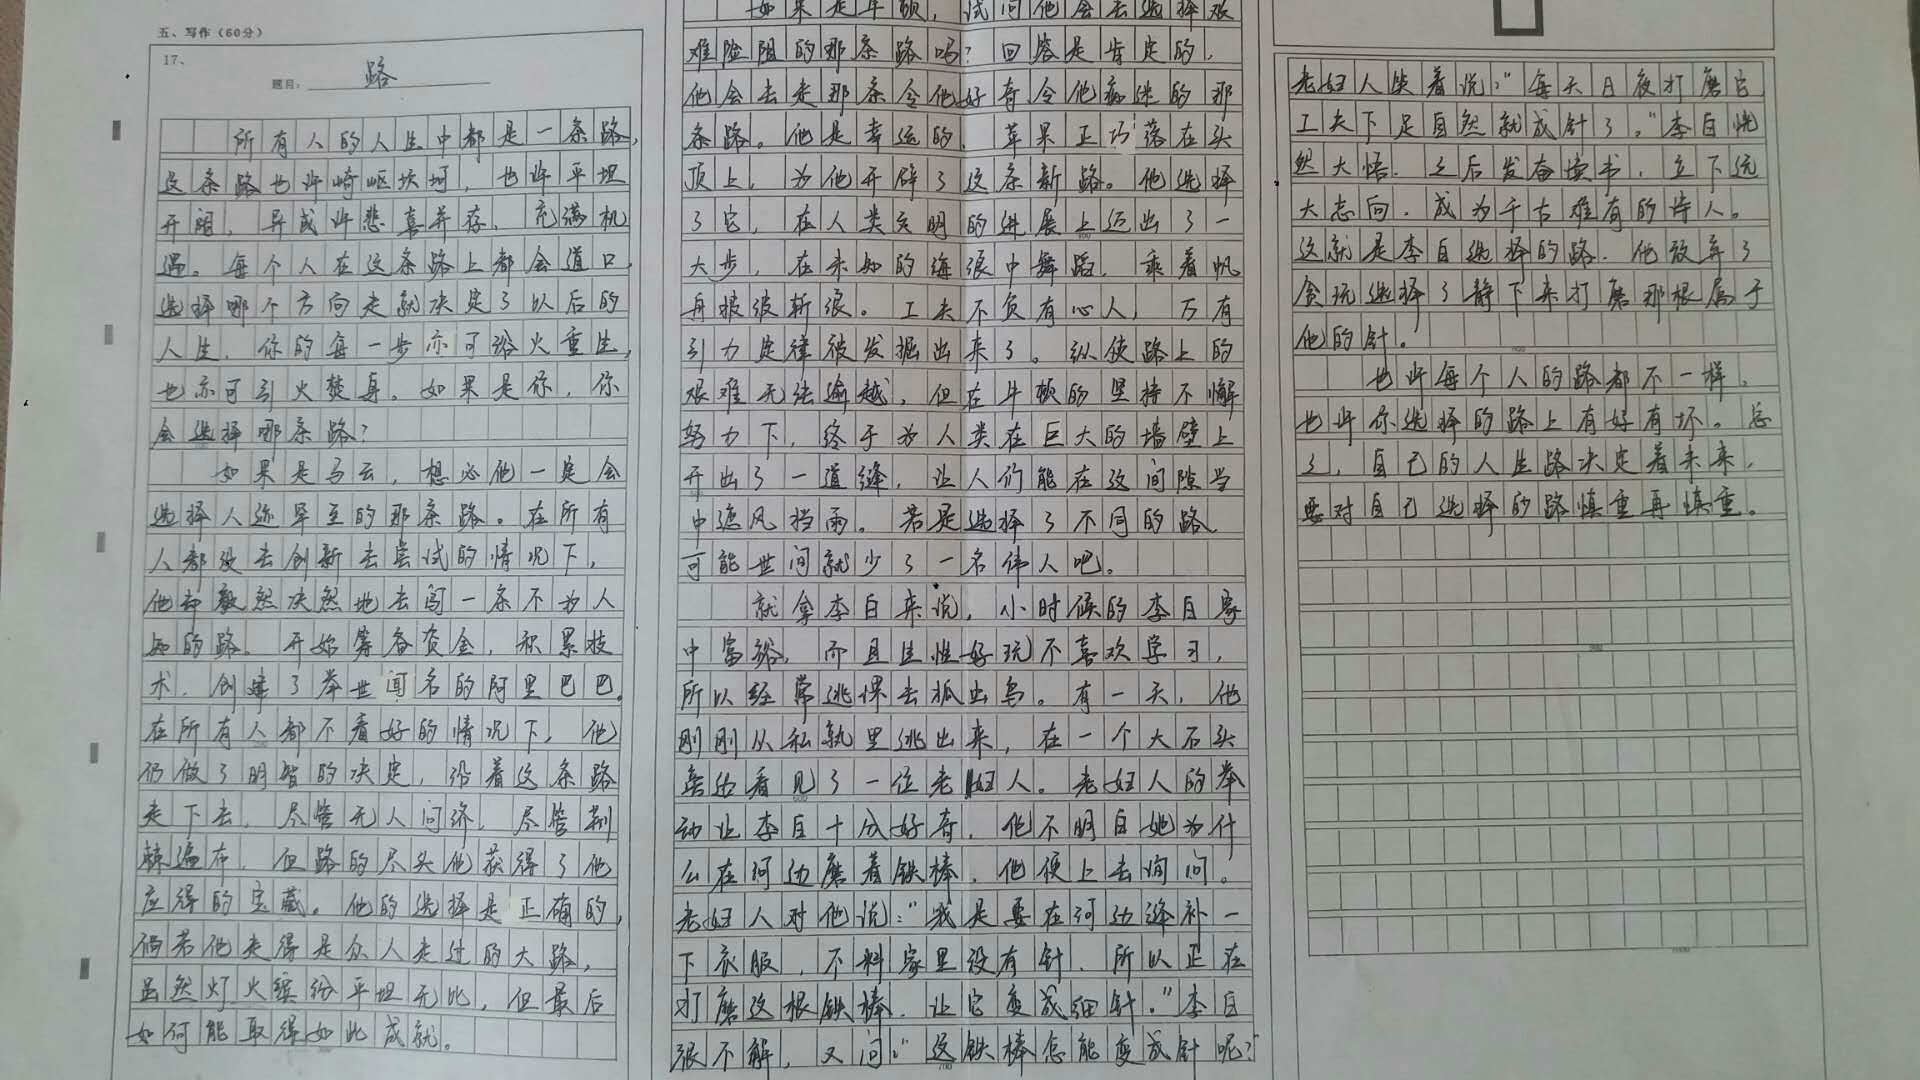 五、写作（60分）
17、
题目：路
所有人的人生中都是一条路，
这条路也许崎岖坎坷，也许平坦
开阔，异或许悲喜并存，充满机
遇。每个人在这条路上都会道口，
选择哪个方向走就决定了以后的
人生，你的每一步亦可浴火重生，
也亦可引火焚身。如果是你，你
会选择哪条路？
如果是马云，想必他一定会
选择人迹罕至的那条路。在所有
人都没去创新去尝试的情况下，
他却毅然决然地去闯一条不为人
知的路。开始筹备资金，积累技
术，创建了举世闻名的阿里巴巴。
在所有人都不看好的情况下，他
仍做了明智的决定，沿着这条路
走下去，尽管无人问津，尽管荆
棘遍布，但路的尽头他获得了他
应得的宝藏。他的选择是正确的，
倘若他走得是众人走过的大路，
虽然灯火缤纷平坦无比，但最后
如何能取得如此成就。
如果是牛顿，试问他会去选择艰
难险阻的那条路吗？回答是肯定的，
他会去走那条令他好奇令他痴迷的那
条路。他是幸运的，苹果正巧落在头
顶上，为他开辟了这条新路。他选择
了它，在人类文明的进展上迈出了一
大步，在未知的海浪中舞蹈，乘着帆
再披波斩浪。工夫不负有心人，万有
引力定律被发掘出来了。纵使路上的
艰难无法逾越，但在牛顿的坚持不懈
努力下，终于为人类在巨大的墙壁上
开出了一道缝，让人们能在这间隙当
中遮风挡雨。若是选择了不同的路、
可能世间就少了一名伟人吧。
就拿李白来说，小时候的李白家
中富裕，而且生性好玩不喜欢学习，
所以经常逃课去抓出鸟。有一天，他
刚刚从私孰里逃出来，在一个大石头
旁边看见了一位老妇人。老妇人的举
动让李白十分好奇，他不明白她为什
么在河边磨着铁棒，他便上去询问。
老妇人对他说：“我是要在河边缝补一
下衣服，不料家里没有针，所以正在
打磨这根铁棒，让它变成细针。”李白
很不解，又问：“这铁棒怎能变成针呢？”
老妇人笑着说：“每天日夜打磨它
工夫下足自然就成针了。”李白恍
然大悟，之后发奋读书，立下远
大志向，成为千古难有的诗人。
这就是李白选择的路，他放弃了
贪玩选择了静下来打磨那根属于
他的针。
也许每个人的路都不一样，
也许你选择的路上有好有坏。总
之，自己的人生路决定着未来，
要对自己选择的路慎重再慎重。